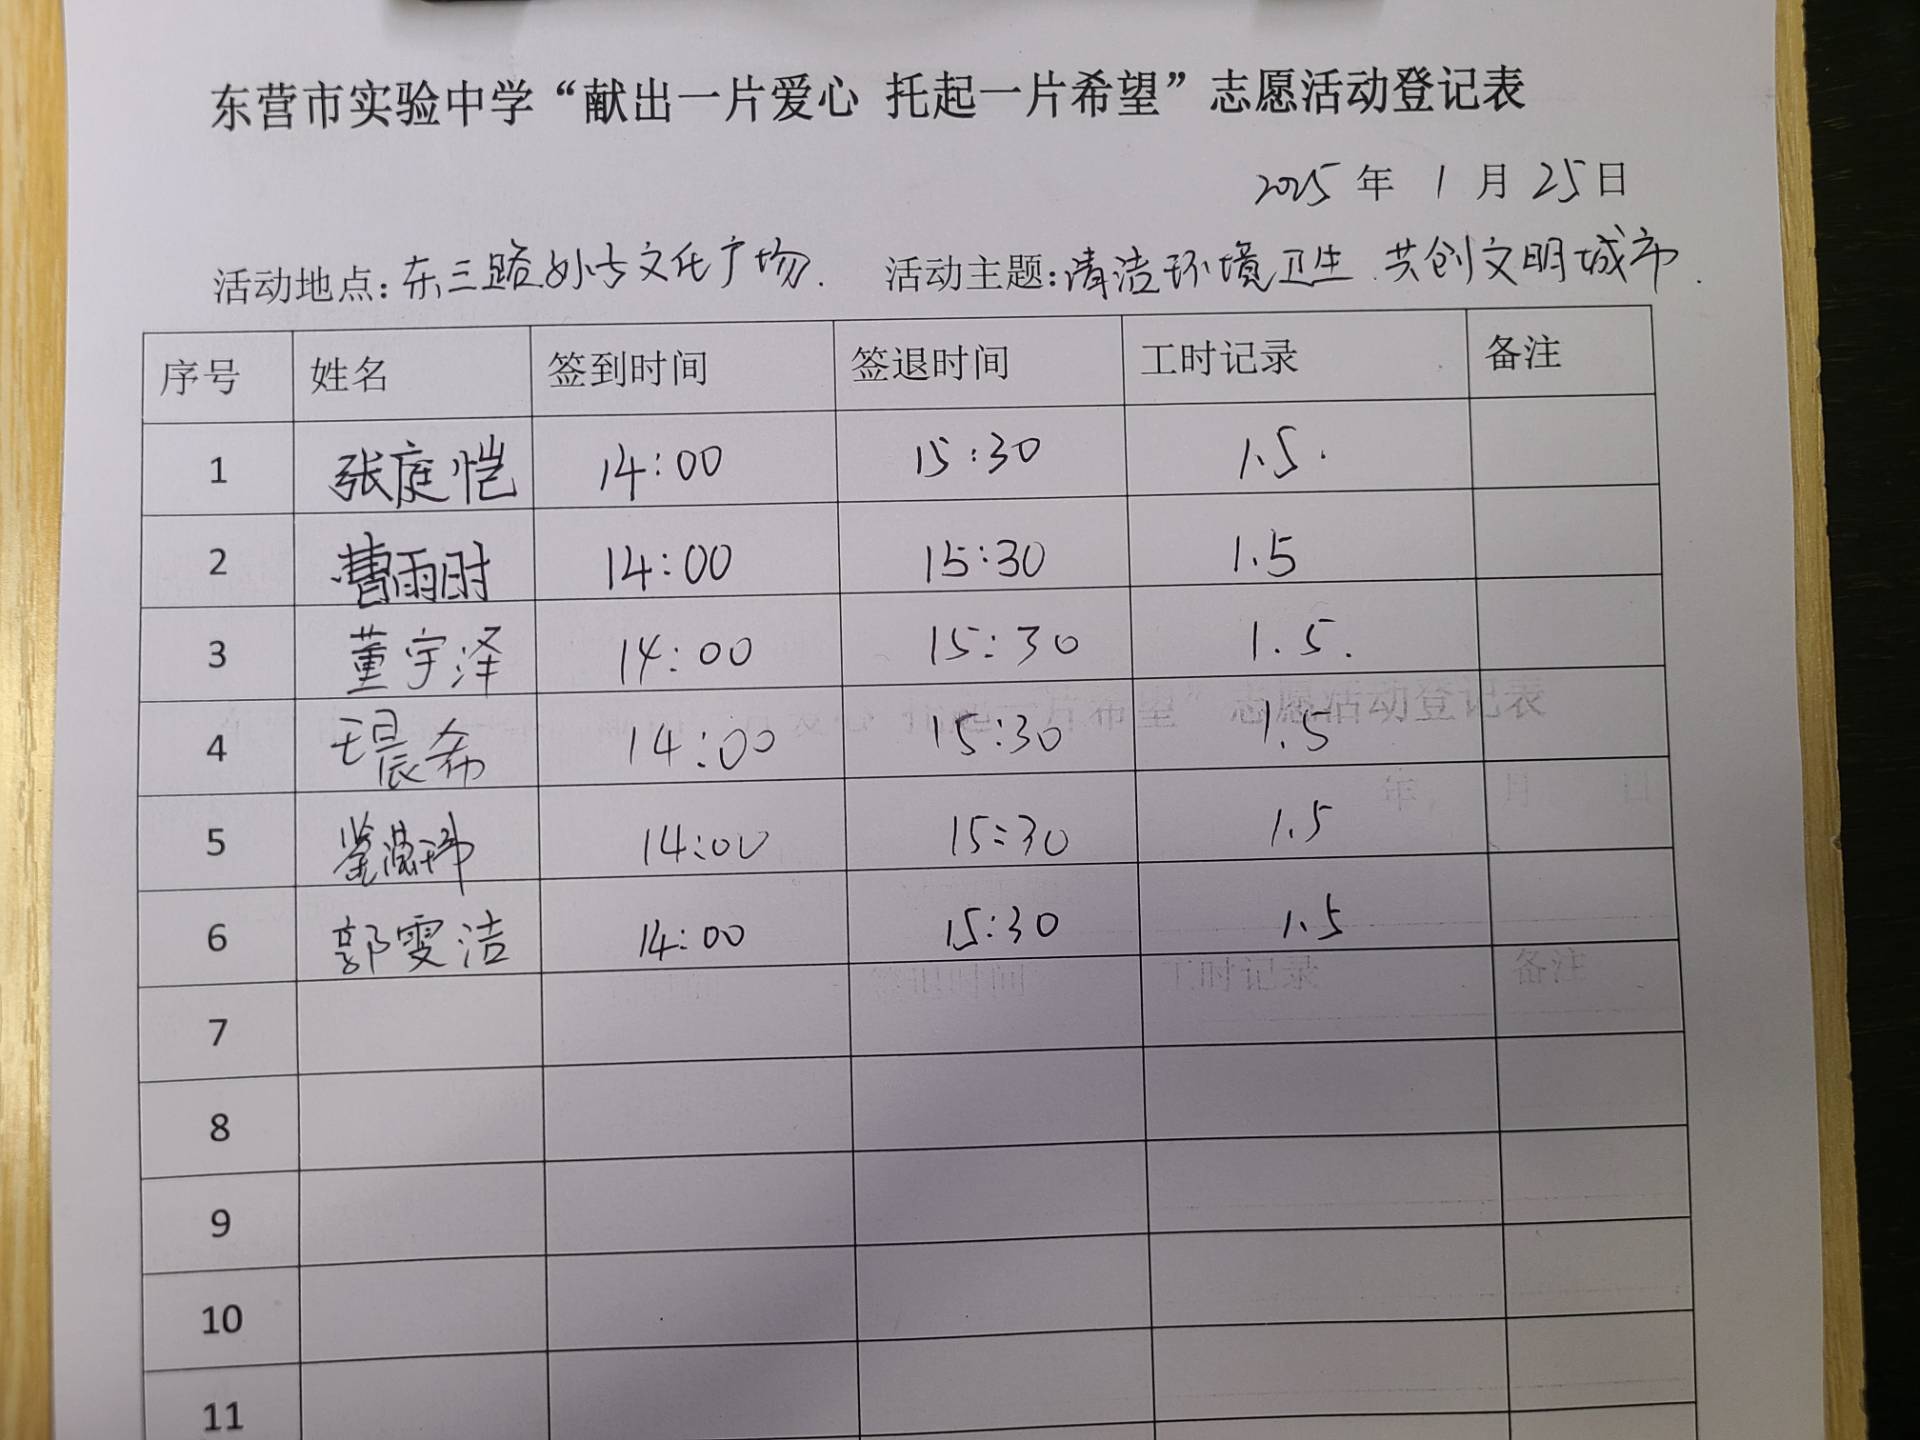 东营市实验中学“献出一片爱心 托起一片希望”志愿活动登记表
2025 年 1 月 25 日
活动地点: 东三路孙子文化广场. 活动主题: 清洁环境卫生 共创文明城市.
序号 姓名 签到时间 签退时间 工时记录 备注
1 张庭恺 14:00 15:30 1.5.
2 曹雨时 14:00 15:30 1.5
3 董宇泽 14:00 15:30 1.5.
4 王晨希 14:00 15:30 1.5
5 14:00 15:30 1.5
6 郭雯洁 14:00 15:30 1.5
7
8
9
10
11